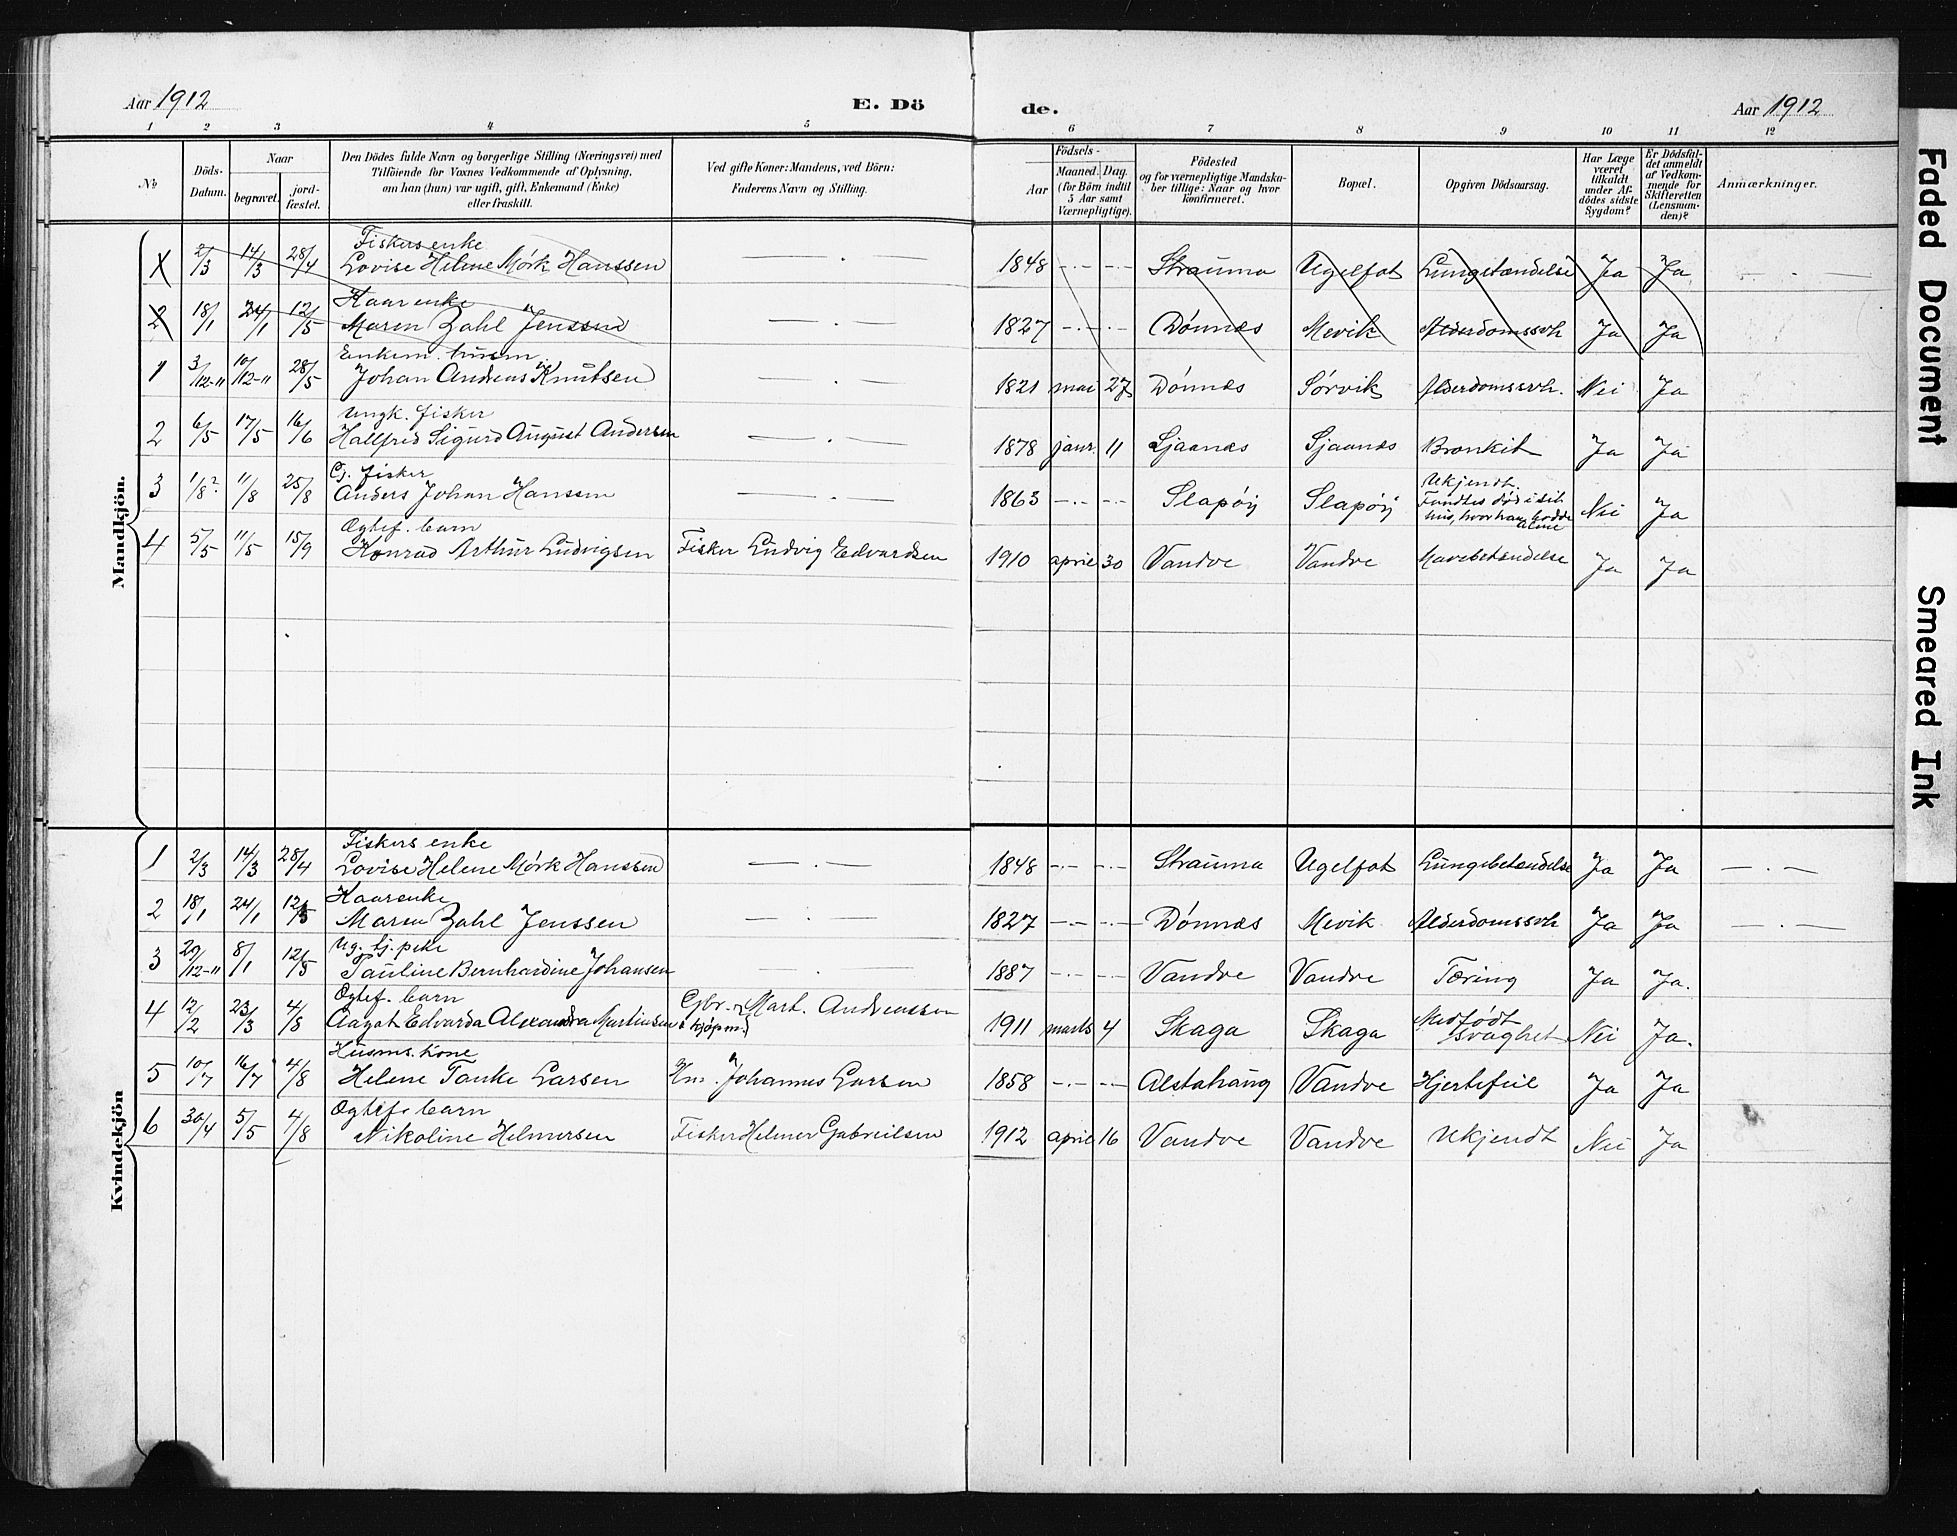 Aar 1912
E. Dö
de.
Aar 1912
1 2 3 4 5 6 7 8 9 10 11 12
№
Döds-
Datum.
Naar
begravet.
jord-
fæstet.
Den Dödes fulde Navn og borgerlige Stilling (Næringsvei) med
Tilföiende for Voxnes Vedkommende af Oplysning,
om han (hun) var ugift, gift, Enkemand (Enke)
eller fraskilt.
Ved gifte Koner: Mandens, ved Börn:
Faderens Navn og Stilling.
Aar
Födsels-
Maaned. Dag.
(for Börn indtil
5 Aar samt
Værnepligtige).
Födested
og for værnepligtige Mandska-
ber tillige: Naar og hvor
konfirmeret.
Bopæl.
Opgiven Dödsaarsag.
Har Læge
været
tilkaldt
under Af-
dödes sidste
Sygdom?
Er Dödsfal-
det anmeldt
af Vedkom-
mende for
Skifteretten
(Lensman-
den)?
Anmærkninger.
Mandkjön.
Fiskers enke
1 2/3 14/3 28/4 Lovise Helene Mørk Hanssen — . — 1848 -.- -.- Strauma Ugelfot Lungebetændelse Ja Ja - . -
Kaarenke
2 18/1 24/1 12/5 Maren Zahl Jenssen — . — 1827 -.- -.- Dønnæs Mevik Alderdomssvh Ja Ja
Enkem. husm.
1 3/12-11 10/12-11 28/5 Johan Andreas Knutsen — . — 1821 mai 27 Dønnæs Sørvik Alderdomssvh. Nei Ja
Ungk. fisker
2 6/5 17/5 16/6 Hallfred Sigurd August Andersen — . — 1878 janr. 11 Sjaanæs Sjaanæs Bronkit Ja Ja
Gj. fisker
3 1/8? 11/8 25/8 Anders Johan Hanssen — . — 1863 -.- -.- Slapøy Slapøy Ukjendt.
Fandtes død i sit
hus, hvor han bodde
alene Nei Ja
Ogtef. barn
4 5/5 11/5 15/9 Konrad Arthur Ludvigsen Fisker Ludvig Edvardsen 1910 april 30 Vandve Vandve Mavebetændelse Ja Ja
Kvindekjön
Fiskers enke
1 2/3 14/3 28/4 Lovise Helene Mørk Hanssen — . — 1848 -.- -.- Strauma Ugelfot Lungebetændelse Ja Ja — . —
Kaarenke
2 18/1 24/1 12/5 Maren Zahl Jenssen — . — 1827 -.- -.- Dønnæs Mevik Alderdomssvh Ja Ja — . —
Ug. tj. pike
3 29/12-11 8/1 12/5 Pauline Bernhardine Johansen - . - 1887 -.- -.- Vandve Vandve Tæring Ja Ja.
Ogtef. barn
4 12/2 23/3 4/8 Aagot Edvarda Alexandra Martinsen Gbr. Mart. Andreassen
kjøpm. 1911 marts 4 Skaga Skaga Medfødt
svaghet Nei Ja.
Husms. kone
5 10/7 16/7 4/8 Helene Tanke Larsen Hm. Johannes Larsen 1858 -.- -- Alstahaug Vandve Hjertefeil Ja Ja
Ogtef. barn
6 30/4 5/5 4/8 Nikoline Helmersen Fisker Helmer Gabrielsen 1912 april 16 Vandve Vandve Ukjendt Nei Ja
Faded Document
Smeared Ink